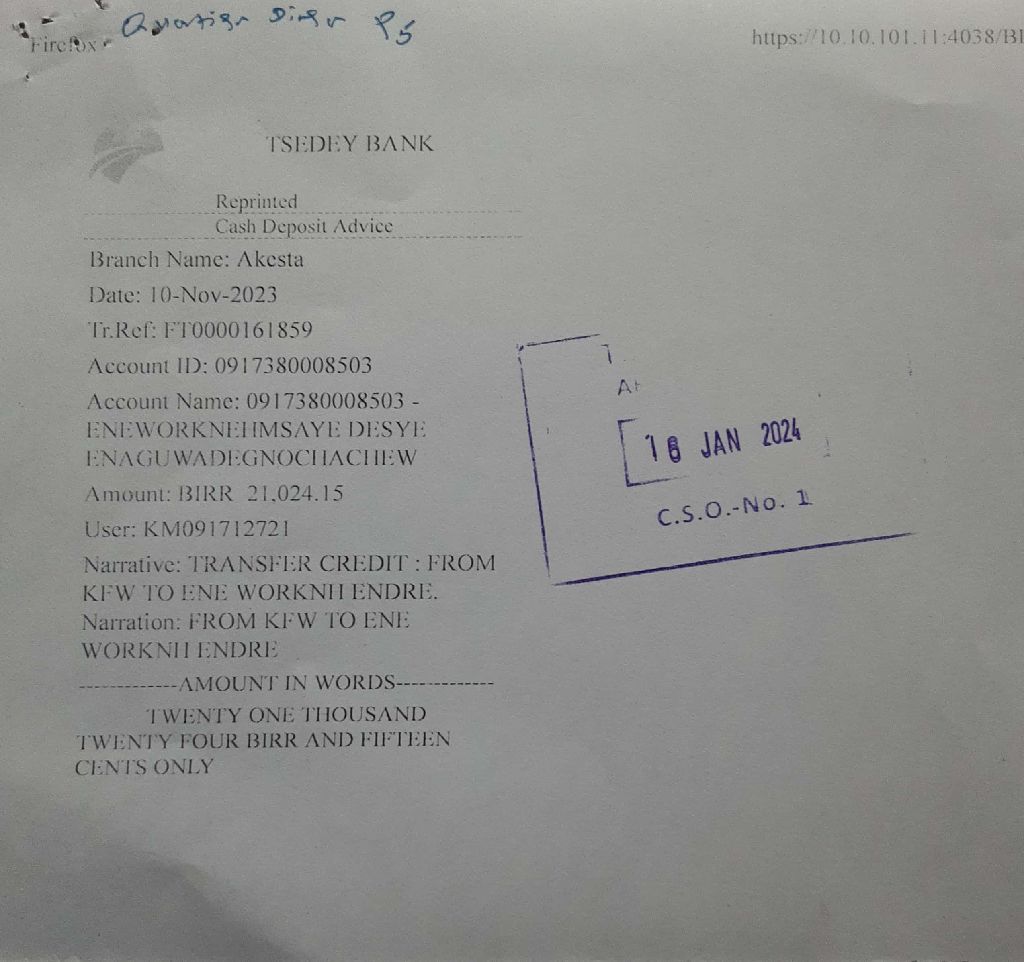 Firefox
https://10.10.101.11:4038/BI
TSEDEY BANK
Reprinted
Cash Deposit Advice
Branch Name: Akesta
Date: 10-Nov-2023
Tr.Ref: FT0000161859
Account ID: 0917380008503
Account Name: 0917380008503 -
ENEWORKNEHMSAYE DESYE
ENAGUWADEGNOCHACHEW
Amount: BIRR 21,024.15
User: KM091712721
Narrative: TRANSFER CREDIT : FROM
KFW TO ENE WORKNH ENDRE.
Narration: FROM KFW TO ENE
WORKNH ENDRE
-------------AMOUNT IN WORDS-------------
TWENTY ONE THOUSAND
TWENTY FOUR BIRR AND FIFTEEN
CENTS ONLY
16 JAN 2024
C.S.O.-No. 1